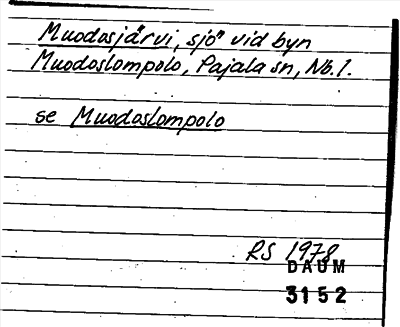 Muodosjärvi, sjö vid byn
Muodoslompolo, Pajala sn, Nb.l.
se Muodoslompolo
RS 1978
DAUM
3152